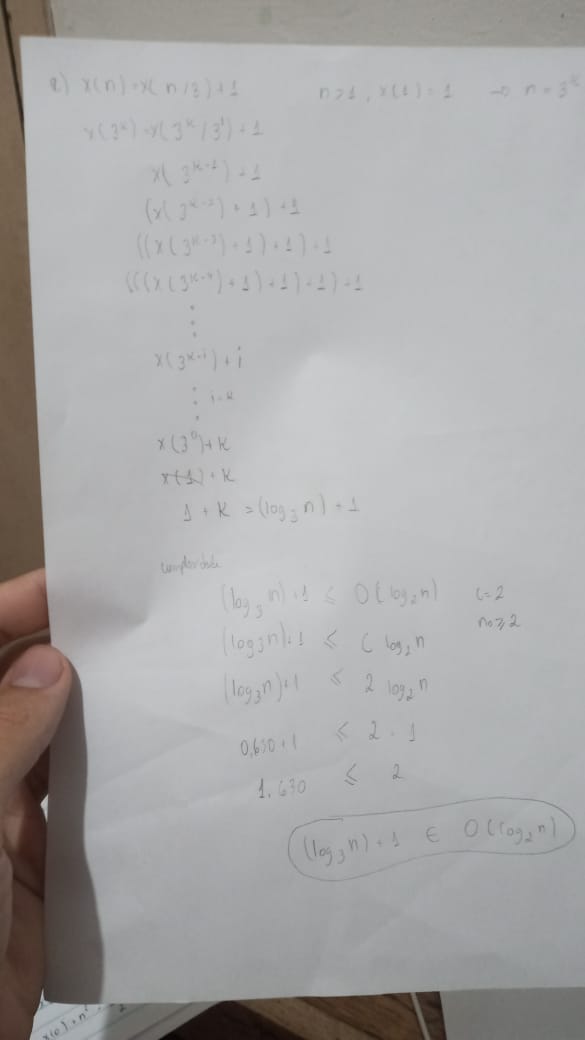 a) x(n) = x(n/3) + 1 n>1, x(1) = 1 → n = 3^k
x(3^k) = x(3^k/3^1) + 1
x(3^{k-1}) + 1
(x(3^{k-2}) + 1) + 1
((x(3^{k-3}) + 1) + 1) + 1
(((x(3^{k-4}) + 1) + 1) + 1) + 1
⋮
x(3^{k-i}) + i
⋮ i=k
x(3^0) + k
x(1) + k
1 + k = (log_3 n) + 1
complexidade
(log_3 n) + 1 ≤ O(log_2 n) c=2
(log_3 n) + 1 ≤ C log_2 n n_0 ≥ 2
(log_3 n) + 1 ≤ 2 log_2 n
0,630 + 1 ≤ 2 . 1
1.630 ≤ 2
(log_3 n) + 1 ∈ O(log_2 n)